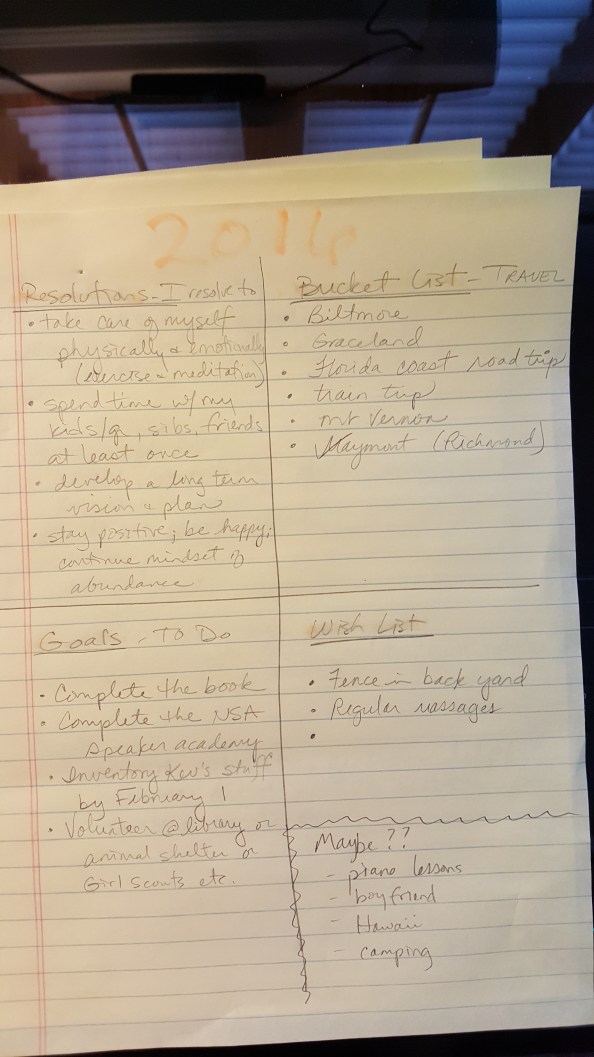 2016
Resolutions - I resolve to
• take care of myself
physically & emotionally
(exercise & meditation)
• spend time w/ my
kids/gr, sibs, friends
at least once
• develop a long term
vision & plan
• stay positive; be happy;
continue mindset of
abundance
Bucket List - TRAVEL
• Biltmore
• Graceland
• Florida coast road trip
• train trip
• Mt Vernon
• Maymont (Richmond)
Goals - To Do
• Complete the book
• Complete the NSA
Speaker academy
• Inventory Kev's stuff
by February 1
• Volunteer @ library or
animal shelter or
Girl Scouts etc.
Wish List
• Fence in back yard
• Regular massages
•
Maybe??
- piano lessons
- boyfriend
- Hawaii
- camping